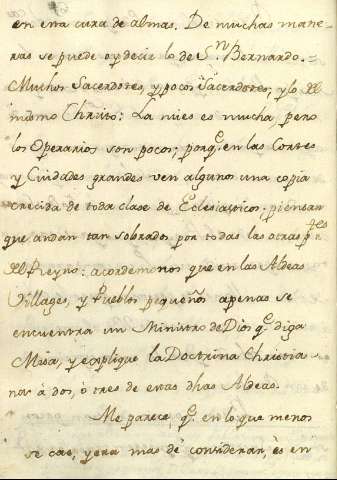 en una cura de almas. De muchas mane-
ras se puede oy decir lo de Sn. Bernardo. =
Muchos Sacerdotes, y pocos Sacerdotes; y lo del
mismo Christo: La mies es mucha, pero
los Operarios son pocos; porq. en las Cortes
y Ciudades grandes ven algunos una copia
crecida de toda clase de Eclesiasticos, piensan
que andan tan sobrados por todas las otras ptes
del Reyno: acordemonos que en las Aldeas
Villages, y Pueblos pequeños apenas se
encuentra un Ministro de Dios q. diga
Misa, y explique la Doctrina Christia-
na à dos, ò tres de estas dhas Aldeas.
Me parece, q. en lo que menos
se cae, y era mas de considerar, es en